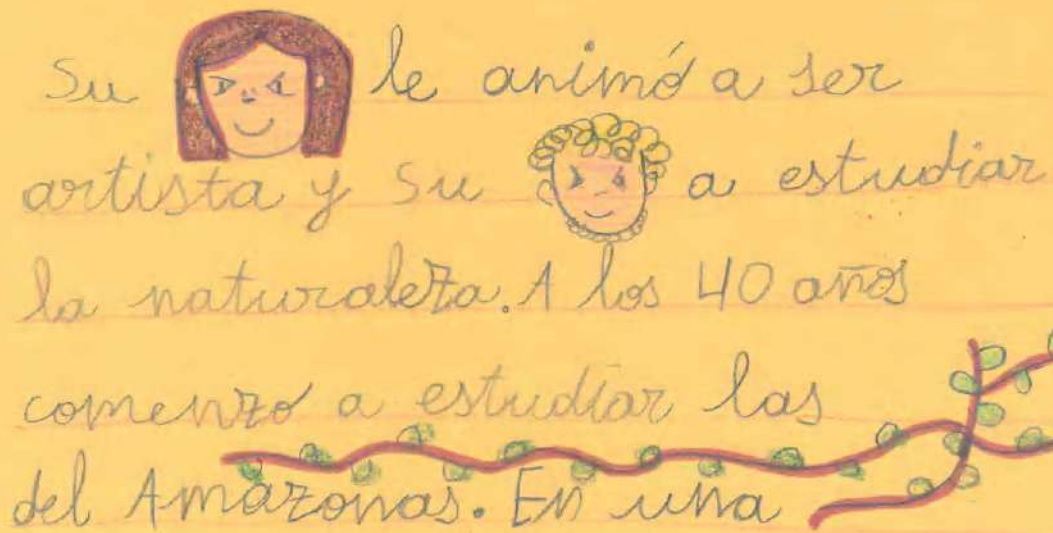 Su le animó a ser
artista y su a estudiar
la naturaleza. A los 40 años
comenzó a estudiar las
del Amazonas. En una